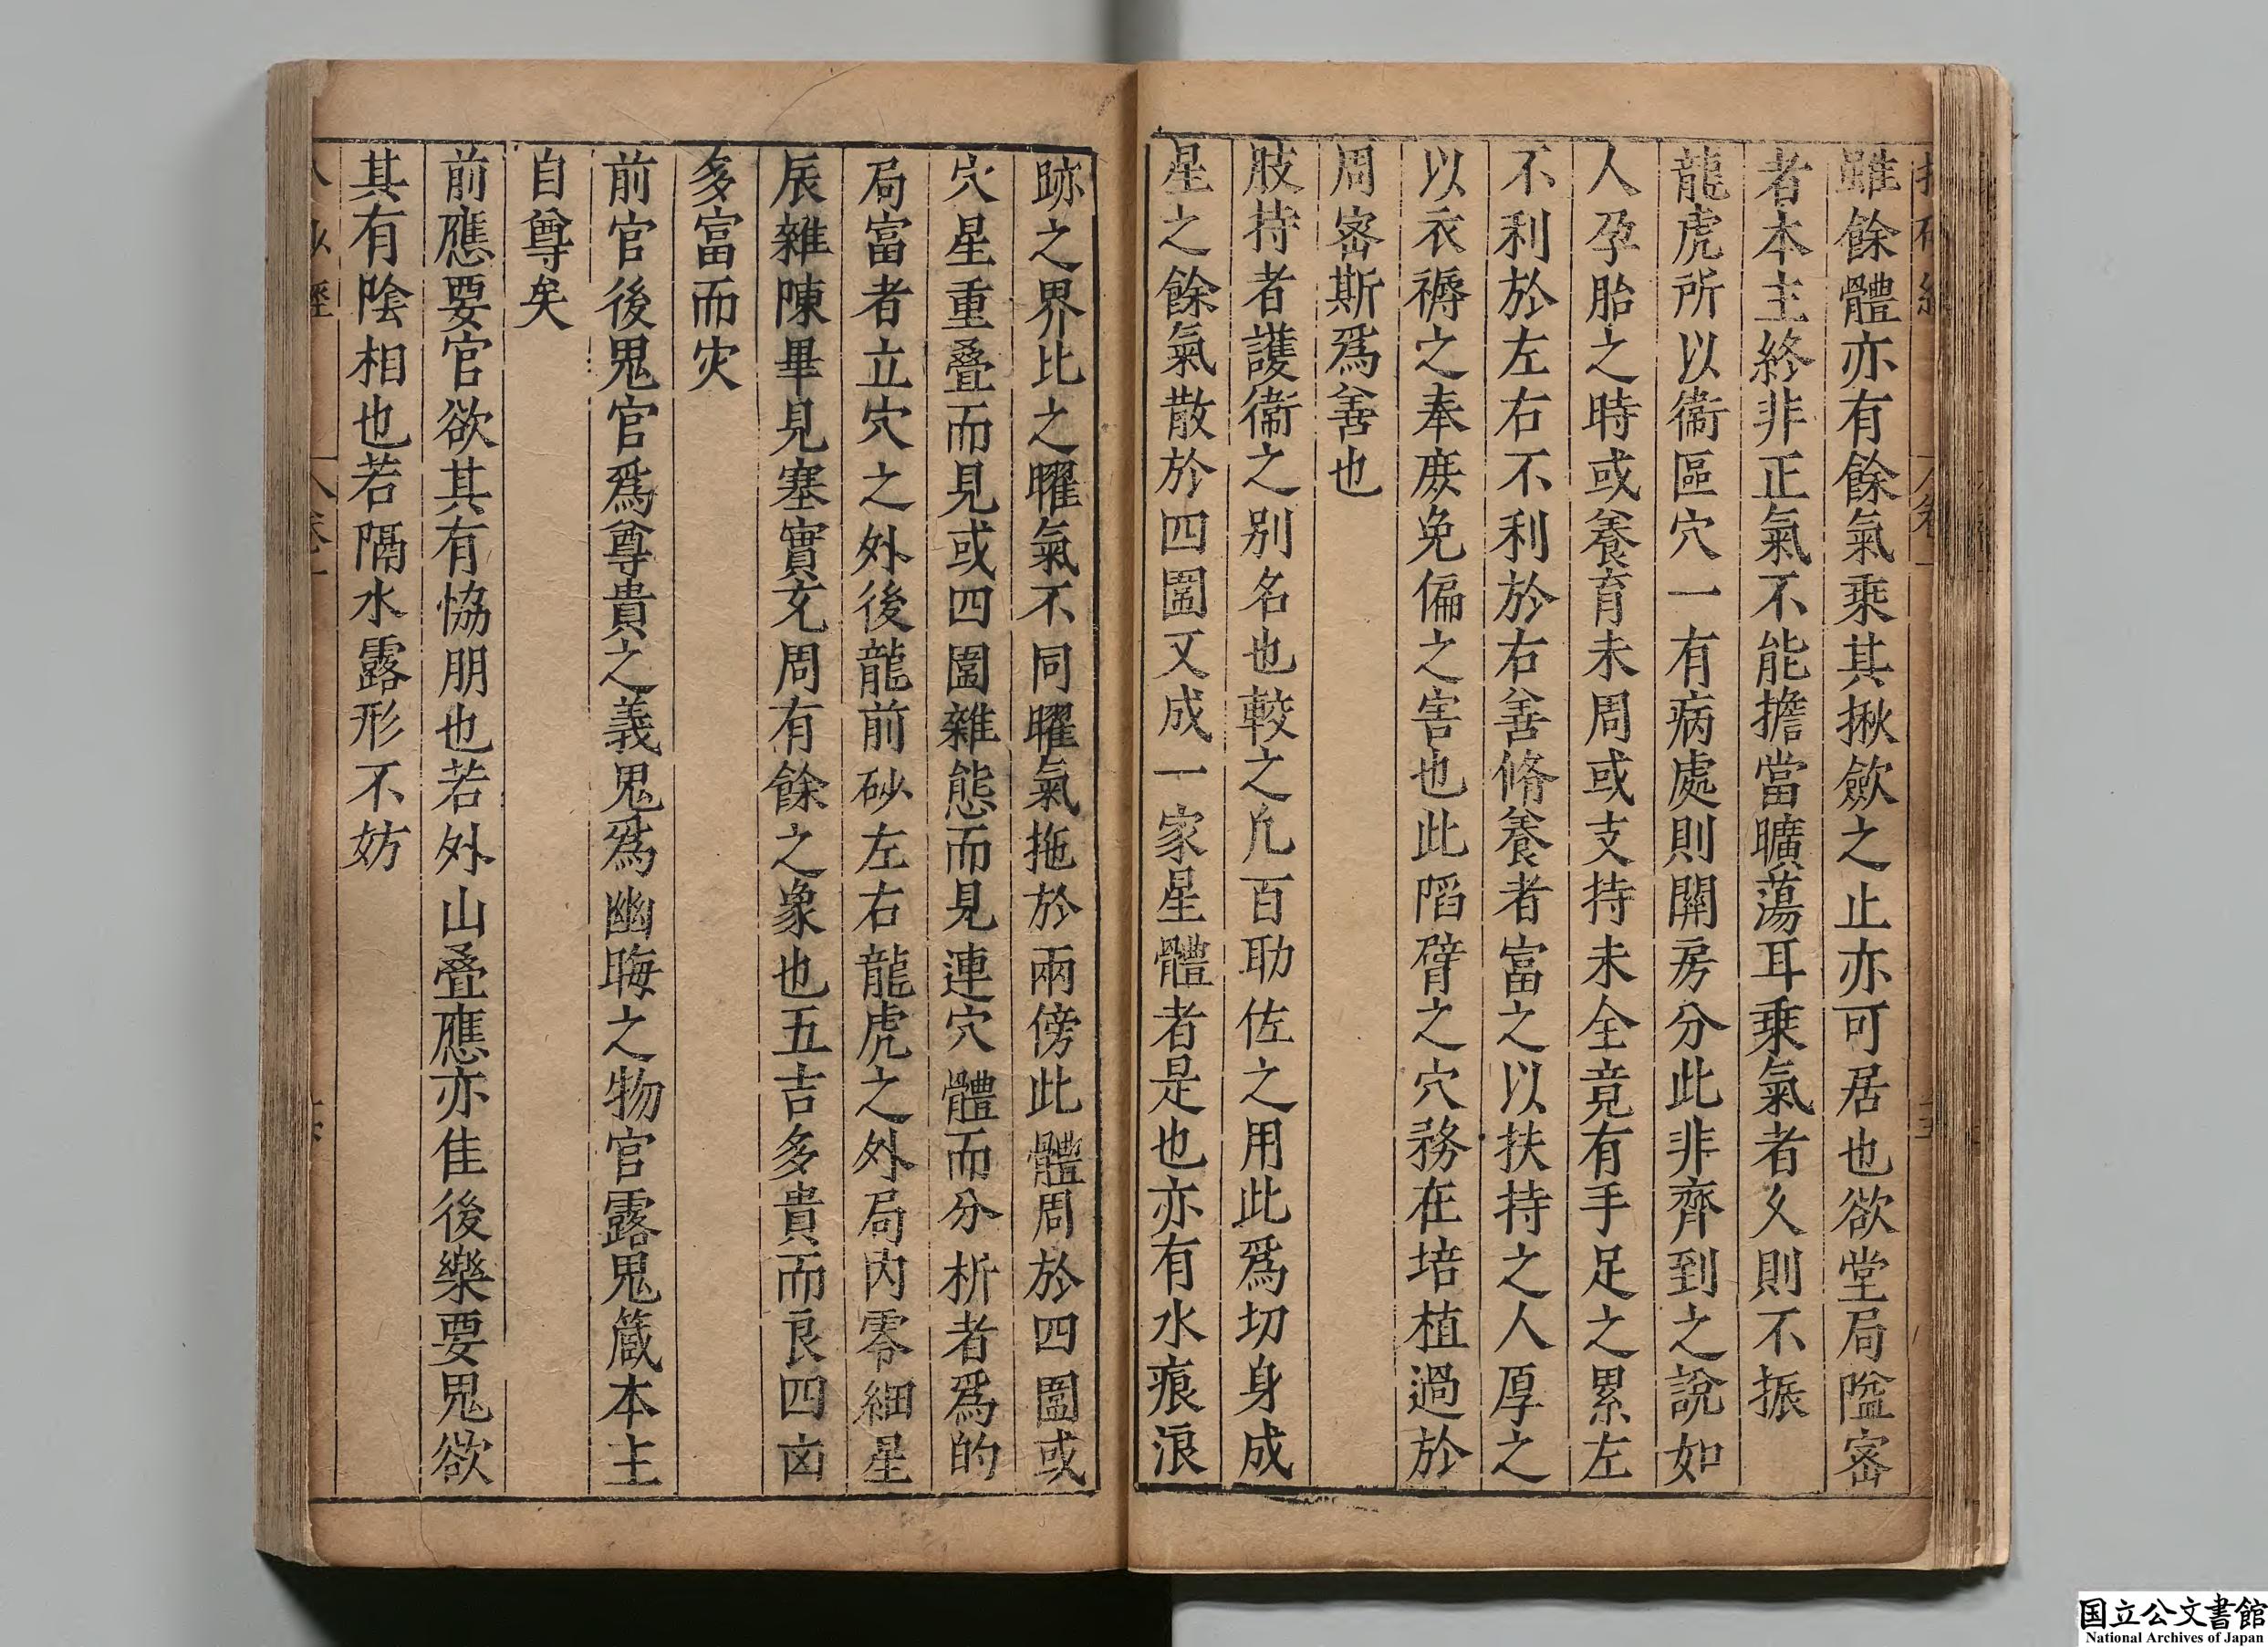 雖餘體亦有餘氣乘其揪歛之止亦可居也欲堂局隘密
者本主終非正氣不能擔當曠蕩耳乗氣者乆則不振
龍虎所以衞區穴一有病處則關房分此非齊到之說如
人孕胎之時或養育未周或支持未全竟有手足之累左
不利於左右不利於右善脩養者富之以扶持之人厚之
以衣褥之奉庶免偏之害也此陷臂之穴務在培植過於
周宻斯爲善也
肢持者護衞之別名也較之凡百助佐之用此爲切身成
星之餘氣散於四圍又成一家星體者是也亦有水痕浪
跡之界比之曜氣不同曜氣拖於兩傍此體周於四圍或
穴星重疊而見或四圍雜態而見連穴體而分析者爲的
局富者立穴之外後龍前砂左右龍虎之外局内零細星
辰雜陳畢見塞實充周有餘之象也五吉多貴而良四凶
多富而灾
前官後鬼官爲尊貴之義鬼爲幽晦之物官露鬼藏本主
自尊矣
前應要官欲其有恊朋也若外山疊應亦佳後樂要鬼欲
其有陰相也若隔水露形不妨
国立公文書館
National Archives of Japan